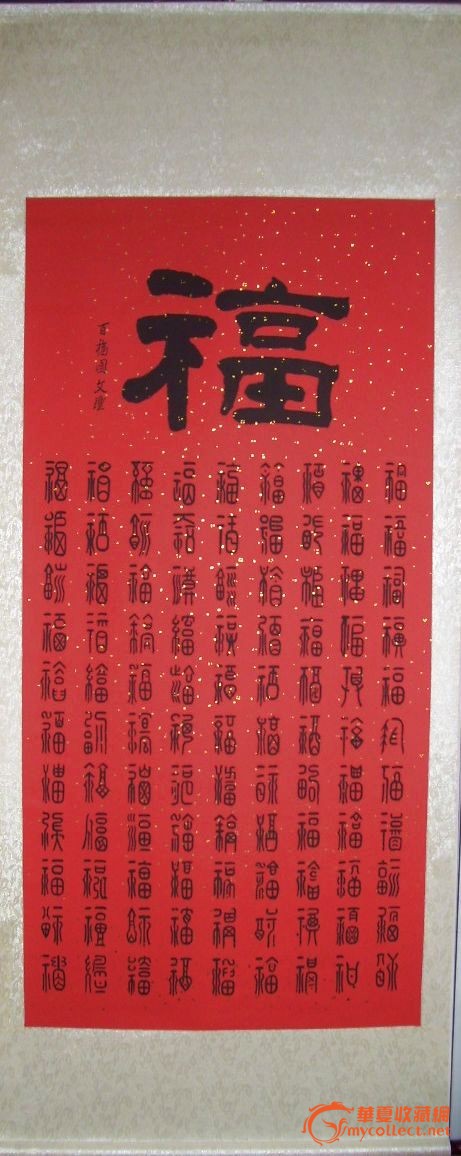 福
百福图文
福福福福福福福福福福福
福福福福福福福福福福福
福福福福福福福福福福福
福福福福福福福福福福福
福福福福福福福福福福福
福福福福福福福福福福福
福福福福福福福福福福福
福福福福福福福福福福福
福福福福福福福福福福福
華夏收藏網
mycollect.net